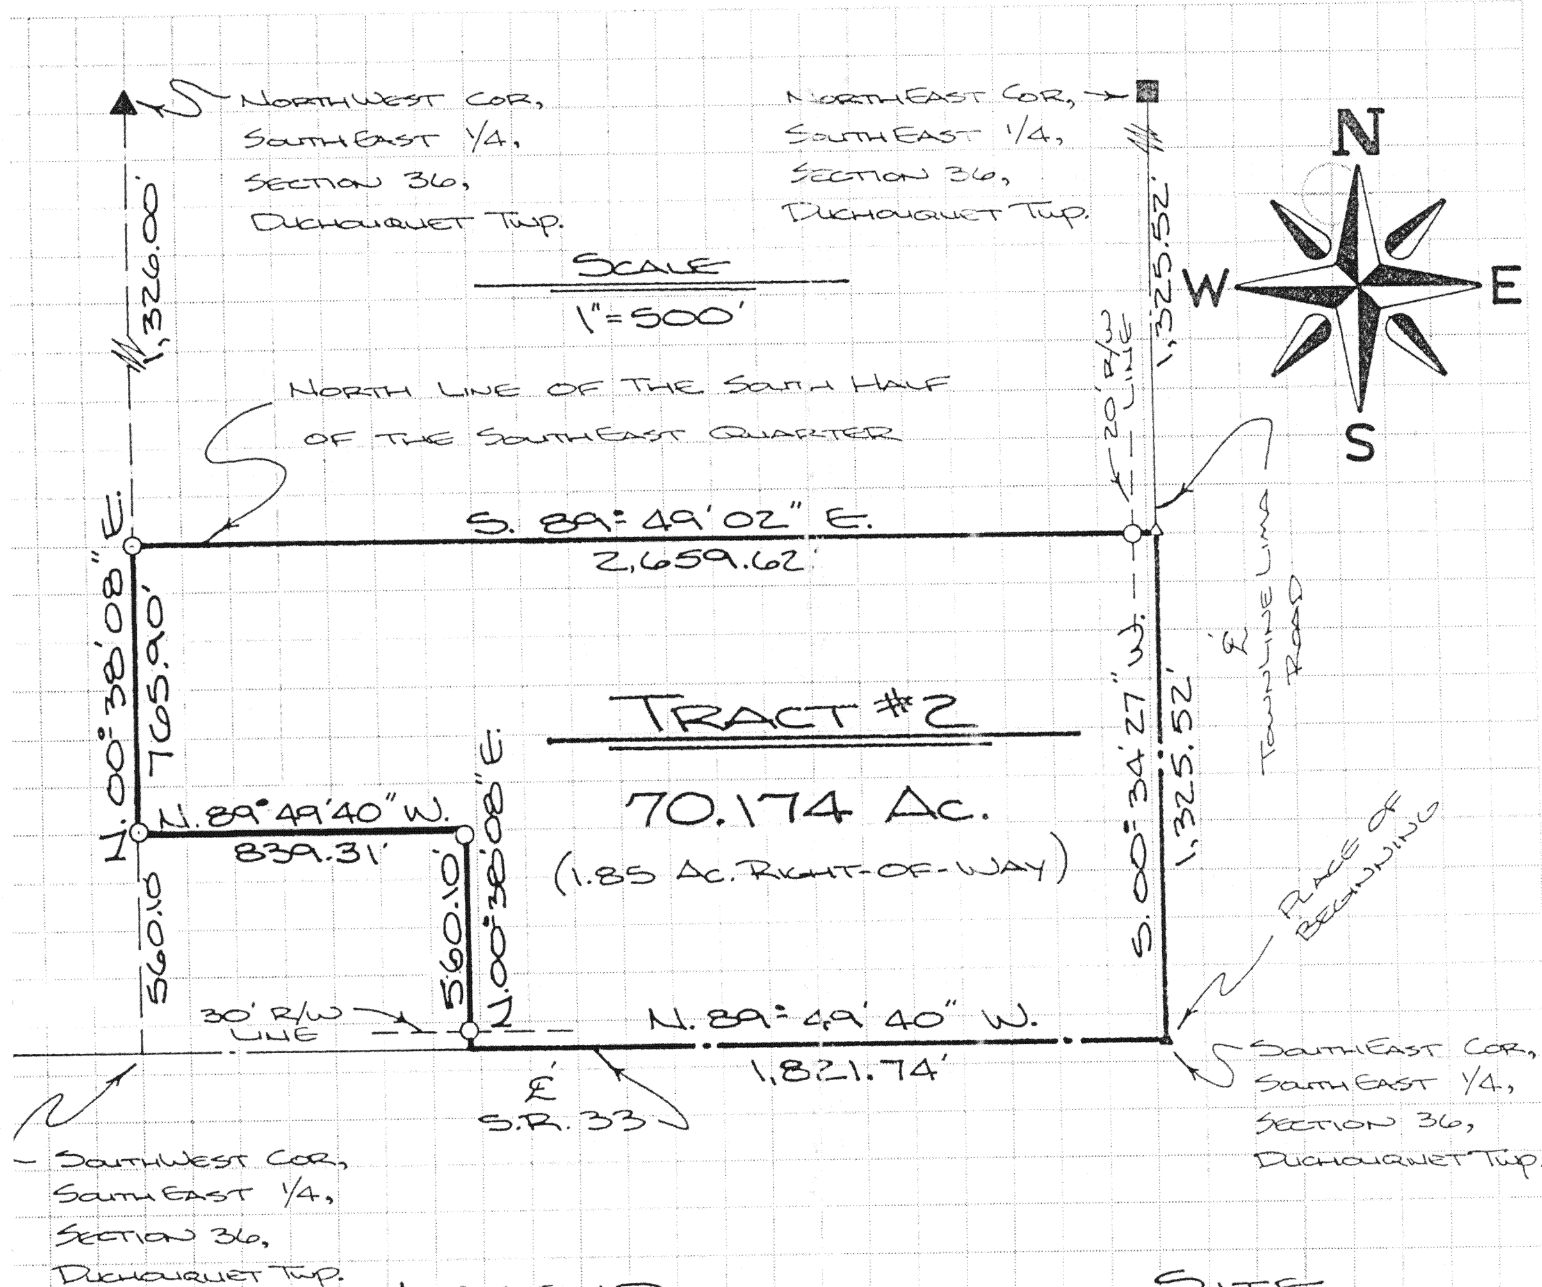 NORTHWEST COR,
SOUTHEAST 1/4,
SECTION 36,
DUCHOUQUET TWP.
NORTHEAST COR,
SOUTHEAST 1/4,
SECTION 36,
DUCHOUQUET TWP.
N
W
E
S
1,326.00'
1,325.52'
SCALE
1"=500'
20' R/W
LINE
NORTH LINE OF THE SOUTH HALF
OF THE SOUTHEAST QUARTER
S. 89° 49' 02" E.
2,659.62'
N. 00° 38' 08" E.
765.90'
TRACT #2
70.174 AC.
(1.85 AC. RIGHT-OF-WAY)
N. 89° 49' 40" W.
839.31'
560.10'
560.10'
N. 00° 38' 08" E.
S. 00° 34' 27" W.
1,325.52'
℄
TOWNLINE LIMA
ROAD
PLACE OF
BEGINNING
30' R/W
LINE
N. 89° 49' 40" W.
1,821.74'
℄
S.R. 33
SOUTHEAST COR,
SOUTHEAST 1/4,
SECTION 36,
DUCHOUQUET TWP.
SOUTHWEST COR,
SOUTHEAST 1/4,
SECTION 36,
DUCHOUQUET TWP.
SITE